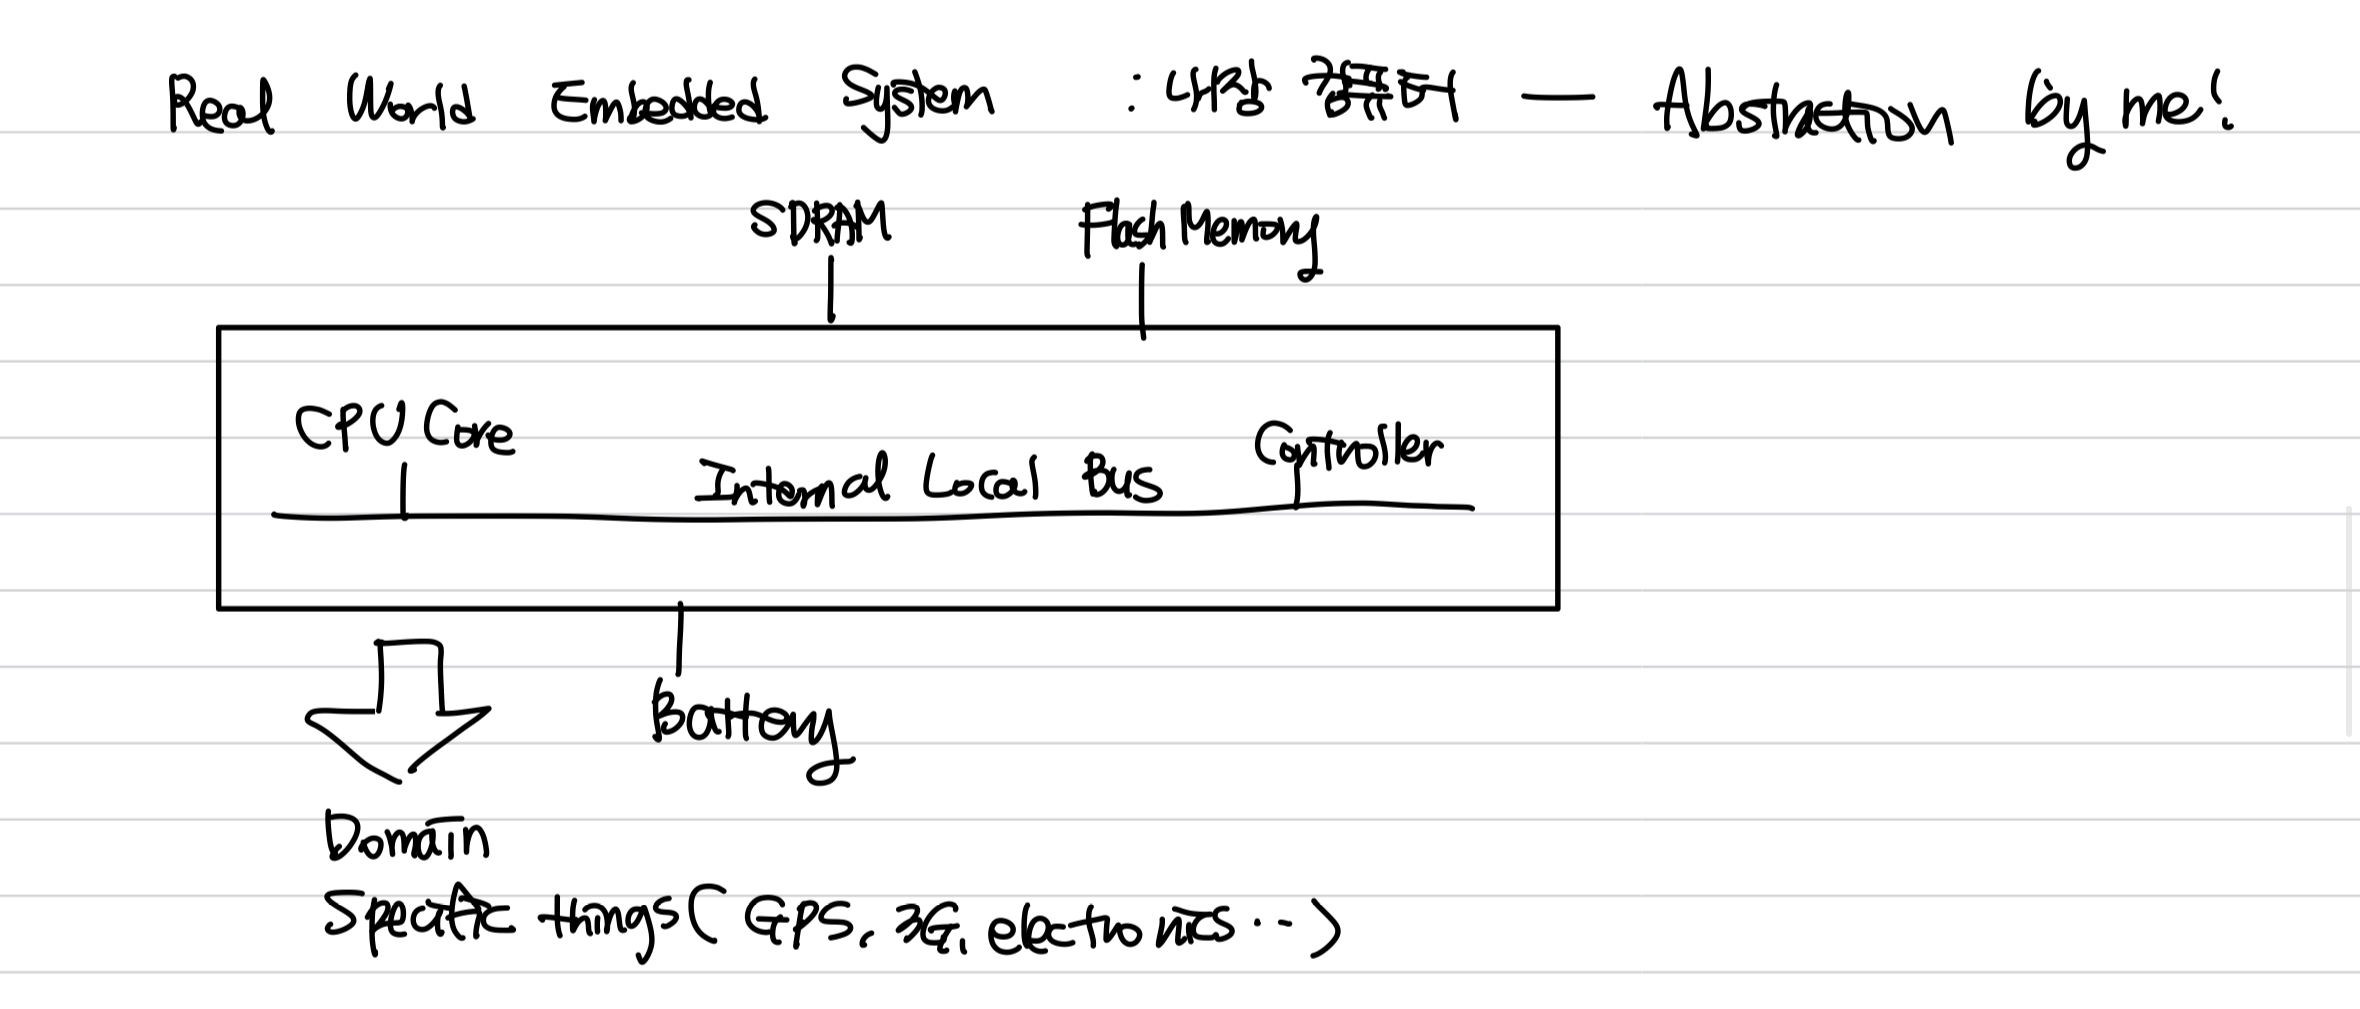 Real World Embedded System : — Abstraction by me!
SDRAM Flash Memory
CPU Core Controller
Internal Local Bus
Battery
Domain
Specific things( GPS, 3G, electronics ‥)